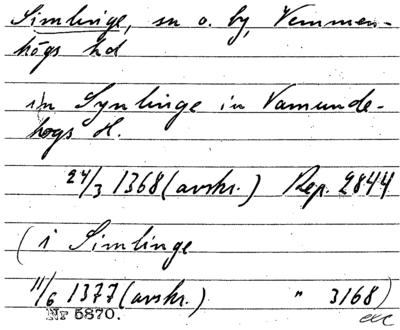 Simlinge, sn o. by, Vemmen-
högs hd
in Synlinge in Vamunde-
hogs H.
24/3 1368 (avskr.) Rep. 2844
(i Simlinge
11/6 1377 (avskr.) " 3168)
Nr 5870.